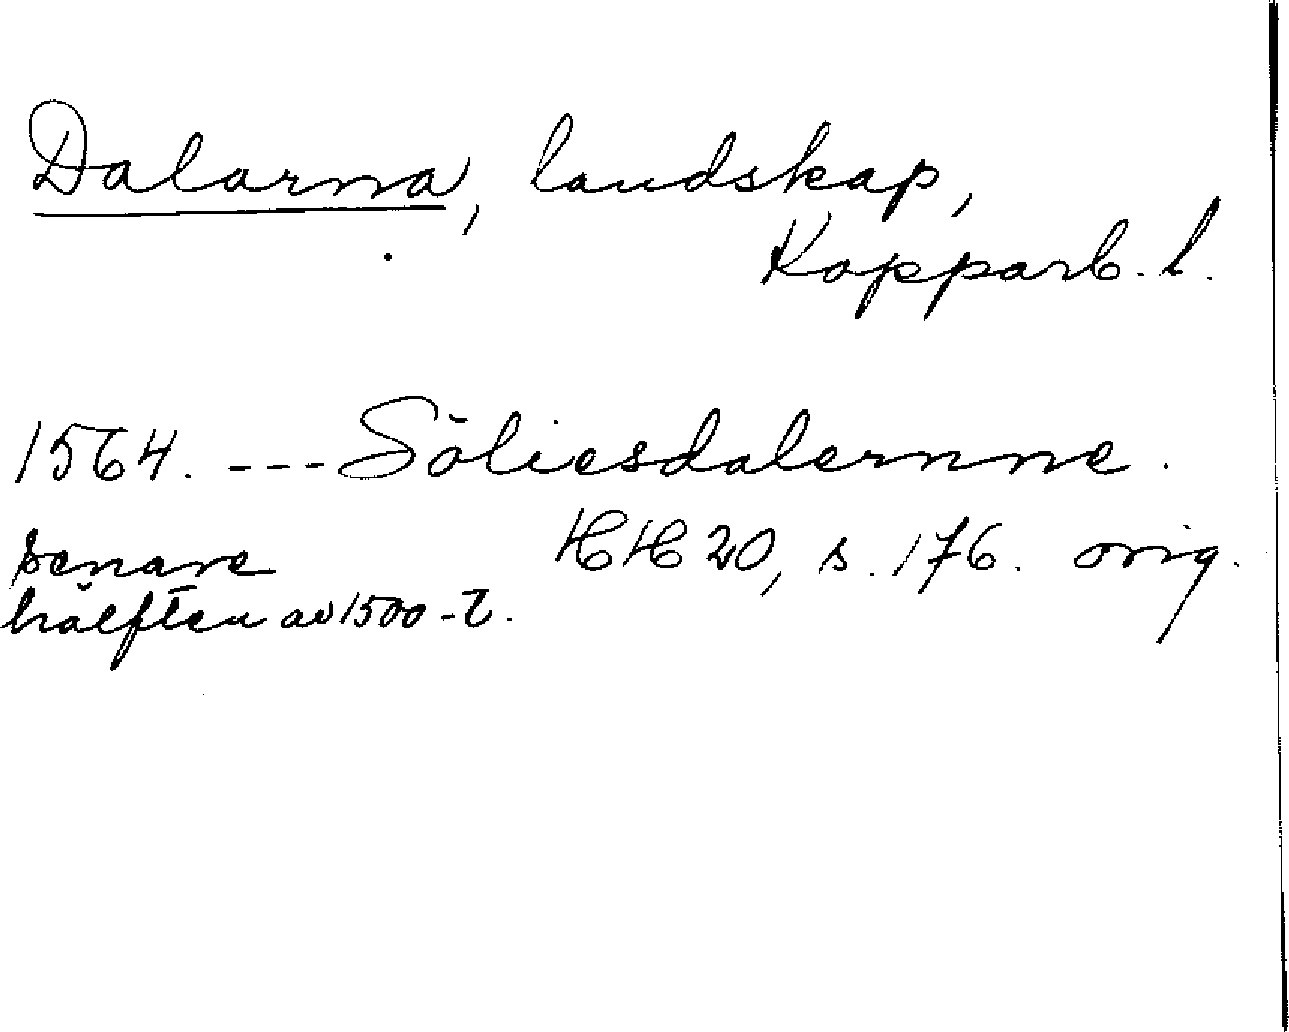 Dalarna, landskap,
Kopparb. l.
1564. --- Söliesdalernne.
HH 20, s. 176. orig.
senare
hälften av 1500-t.